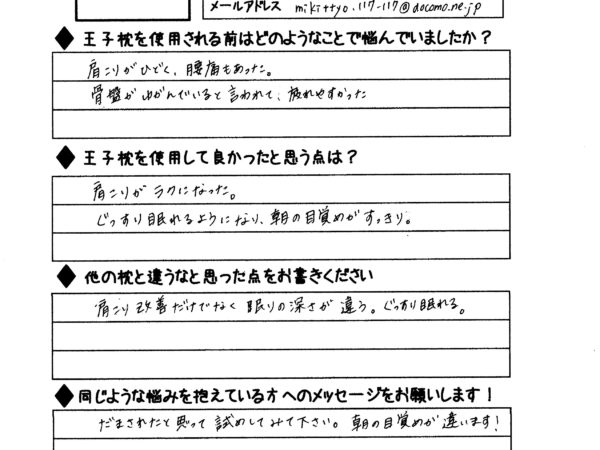 メールアドレス mikittyo.117-117@docomo.ne.jp
◆ 王子枕を使用される前はどのようなことで悩んでいましたか？
肩こりがひどく、腰痛もあった。
骨盤がゆがんでいると言われて、疲れやすかった
◆ 王子枕を使用して良かったと思う点は？
肩こりがラクになった。
ぐっすり眠れるようになり、朝の目覚めがすっきり。
◆ 他の枕と違うなと思った点をお書きください
肩こり改善だけでなく眠りの深さが違う。ぐっすり眠れる。
◆ 同じような悩みを抱えている方へのメッセージをお願いします！
だまされたと思って試めしてみて下さい。朝の目覚めが違います！